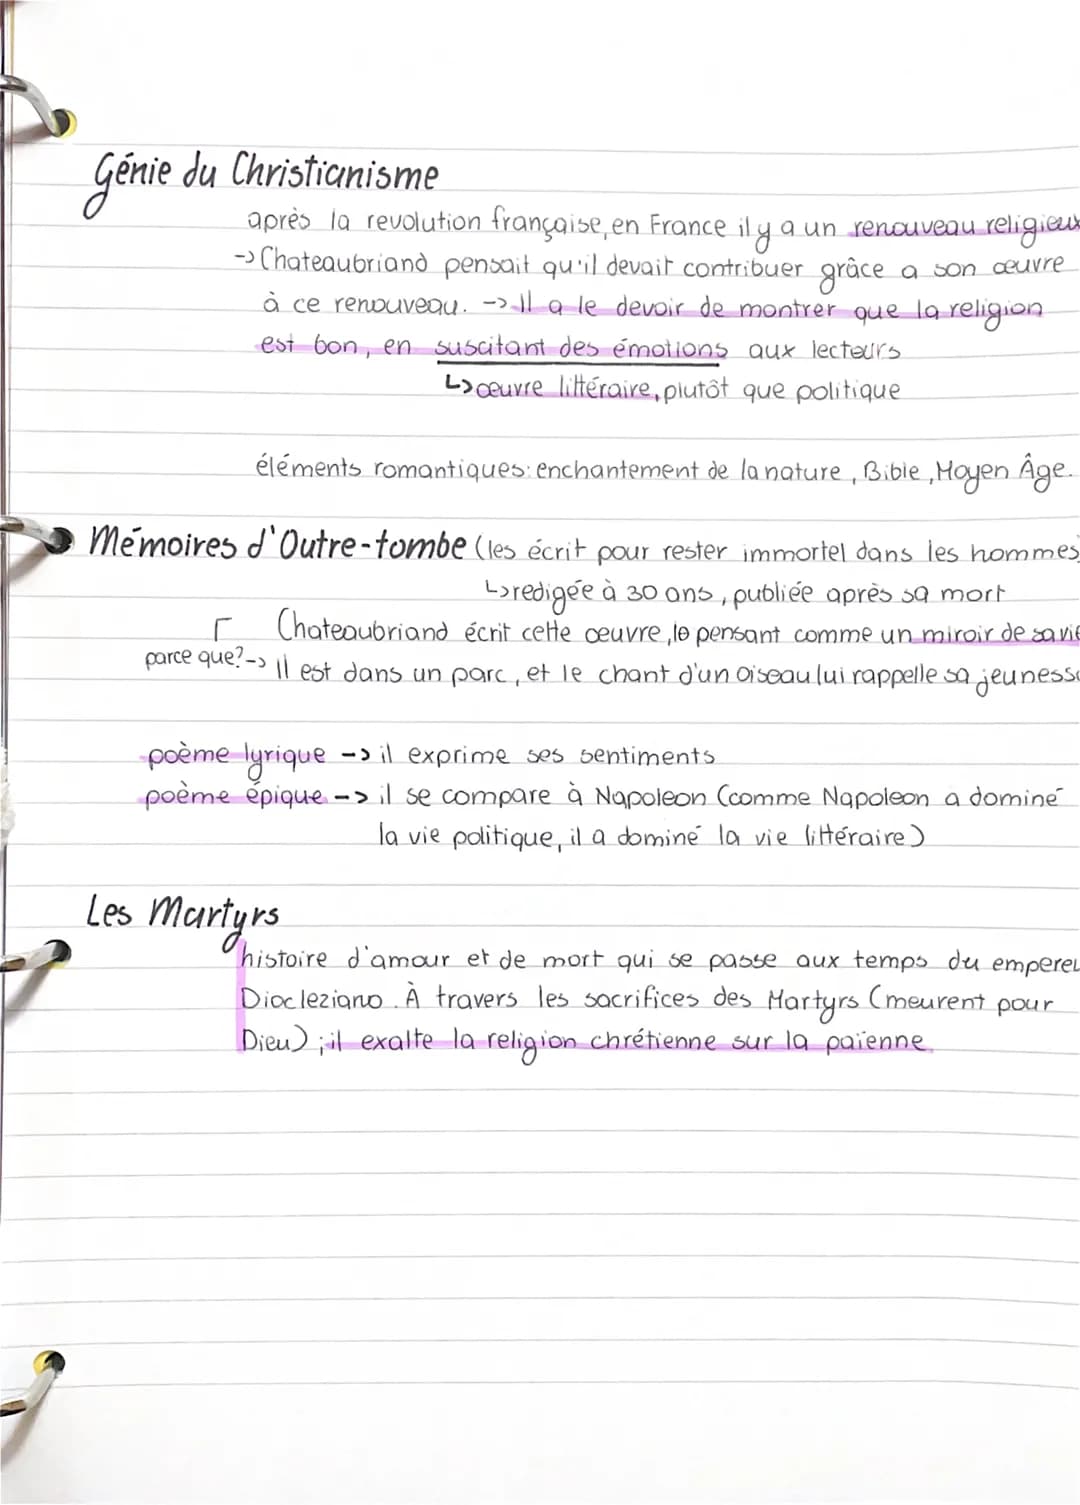 Génie du Christianisme
après la revolution française, en France il y a un renouveau religieux
-> Chateaubriand pensait qu'il devait contribuer grâce a son œuvre
à ce renouveau. -> Il a le devoir de montrer que la religion
est bon, en suscitant des émotions aux lecteurs
↳ œuvre littéraire, plutôt que politique
éléments romantiques: enchantement de la nature, Bible, Moyen Âge.
Mémoires d'Outre-tombe (les écrit pour rester immortel dans les hommes)
↳ redigée à 30 ans, publiée après sa mort
Chateaubriand écrit cette œuvre, le pensant comme un miroir de sa vie
parce que? -> Il est dans un parc, et le chant d'un oiseau lui rappelle sa jeunesse
poème lyrique -> il exprime ses sentiments
poème épique -> il se compare à Napoleon (comme Napoleon a dominé
la vie politique, il a dominé la vie littéraire)
Les Martyrs
histoire d'amour et de mort qui se passe aux temps du empereu
Diocleziano. À travers les sacrifices des Martyrs (meurent pour
Dieu); il exalte la religion chrétienne sur la païenne